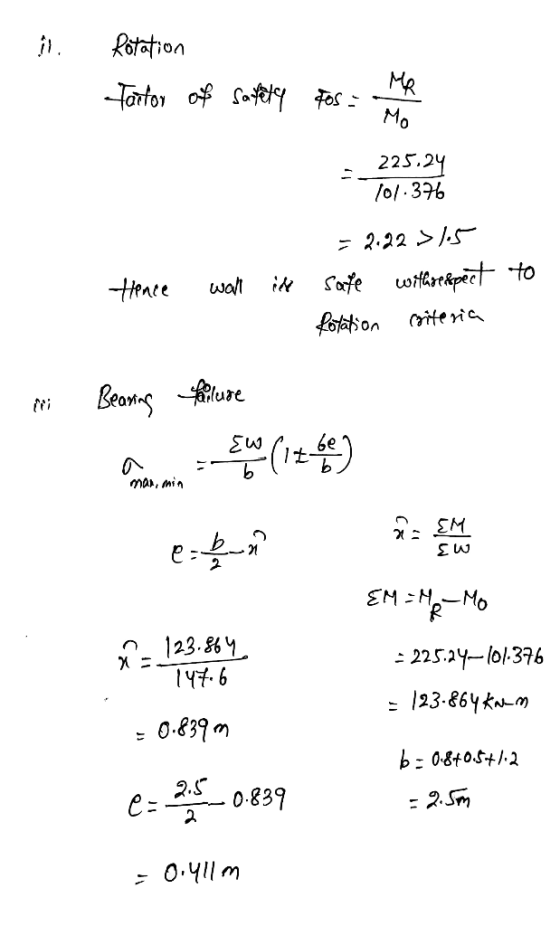 ii. Rotation
Factor of safety FOS = M_R / M_O
= 225.24 / 101.376
= 2.22 > 1.5
Hence wall is safe with respect to
Rotation criteria
iii Bearing failure
σ_max, min = ΣW / b (1 ± 6e / b)
e = b / 2 - x̂ x̂ = ΣM / ΣW
ΣM = M_R - M_O
x̂ = 123.864 / 147.6 = 225.24 - 101.376
= 0.839 m = 123.864 kN-m
b = 0.8+0.5+1.2
e = 2.5 / 2 - 0.839 = 2.5m
= 0.411 m